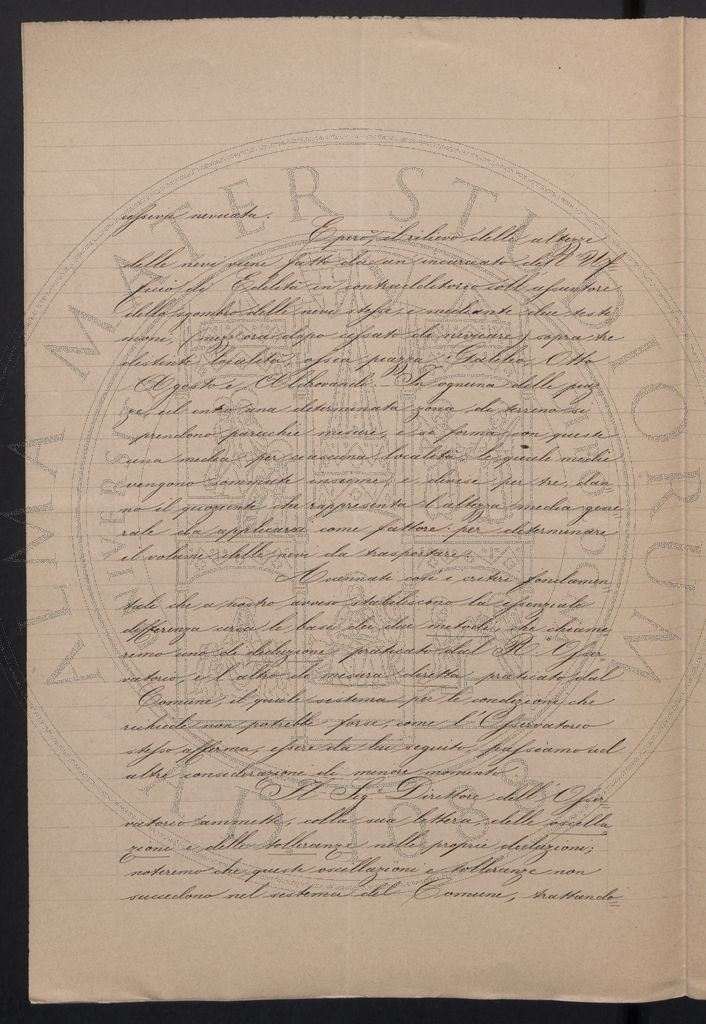 essiva nevicata.
E però, il rilievo delle altezze
delle nevi viene fatto da un incaricato dell'Uf=
ficio di Edilità in contradditorio coll'assuntore
dello sgombro delle nevi stesse, e mediante due testi
moni, (mezz'ora dopo cessato di nevicare) sopra tre
distinte località, ossia piazza Galileo, Otto
Agosto e, Aldrovandi. - In ognuna delle piaz
ze, ed entro una determinata zona di terreno si
prendono parecchie misure, e si forma con queste
una media per ciascuna località; le quali medie
vengono sommate insieme, e, divise per tre, dan=
no il quoziente che rappresenta l'altezza media gene
rale da applicarsi come fattore per determinare
il volume delle nevi da trasportarsi.
Accennati così i criteri fondamen=
tali che a nostro avviso stabiliscono la essenziale
differenza circa le basi dei due metodi, che chiame
remo uno di deduzione praticato dal R. Osser
vatorio, e l'altro di misura diretta praticato dal
Comune, il quale sistema per le condizioni che
richiede non potrebbe forse, come l'Osservatorio
stesso afferma, essere da lui seguito, passiamo ad
altre considerazioni di minore momento.
Il Sig. Direttore dell'Osser=
vatorio ammette, colla sua lettera, delle oscilla
zioni e delle tolleranze nelle proprie deduzioni;
noteremo che queste oscillazioni e tolleranze non
succedono nel sistema del Comune, trattando=
ALMA MATER STUDIORUM
A.D. 1088